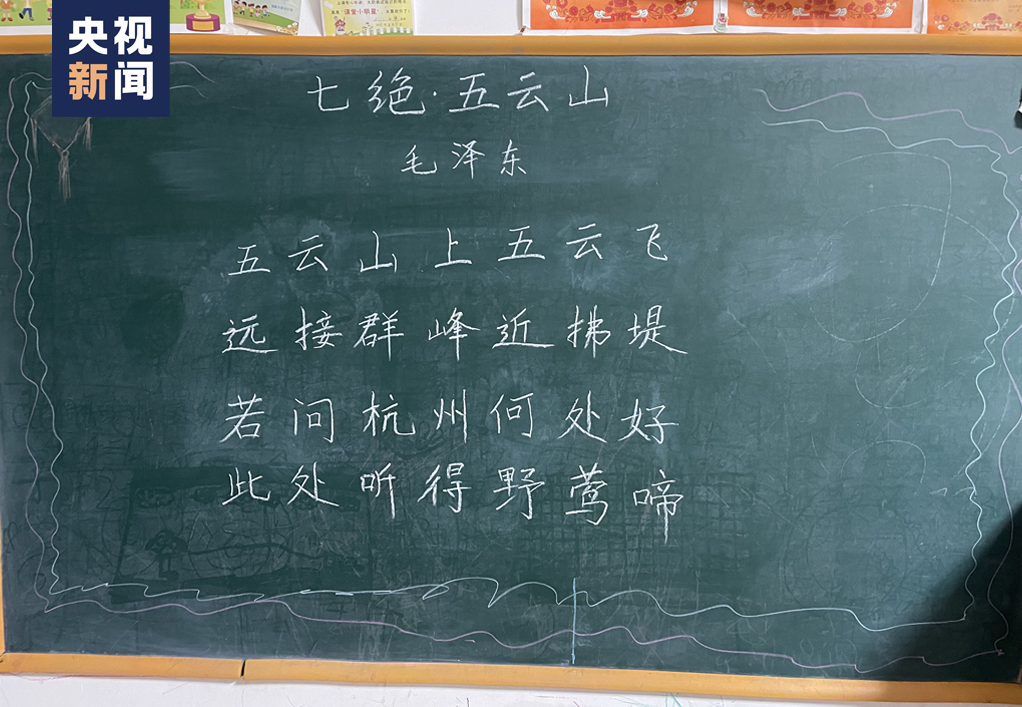 央视
新闻
七绝·五云山
毛泽东
五云山上五云飞
远接群峰近拂堤
若问杭州何处好
此处听得野莺啼